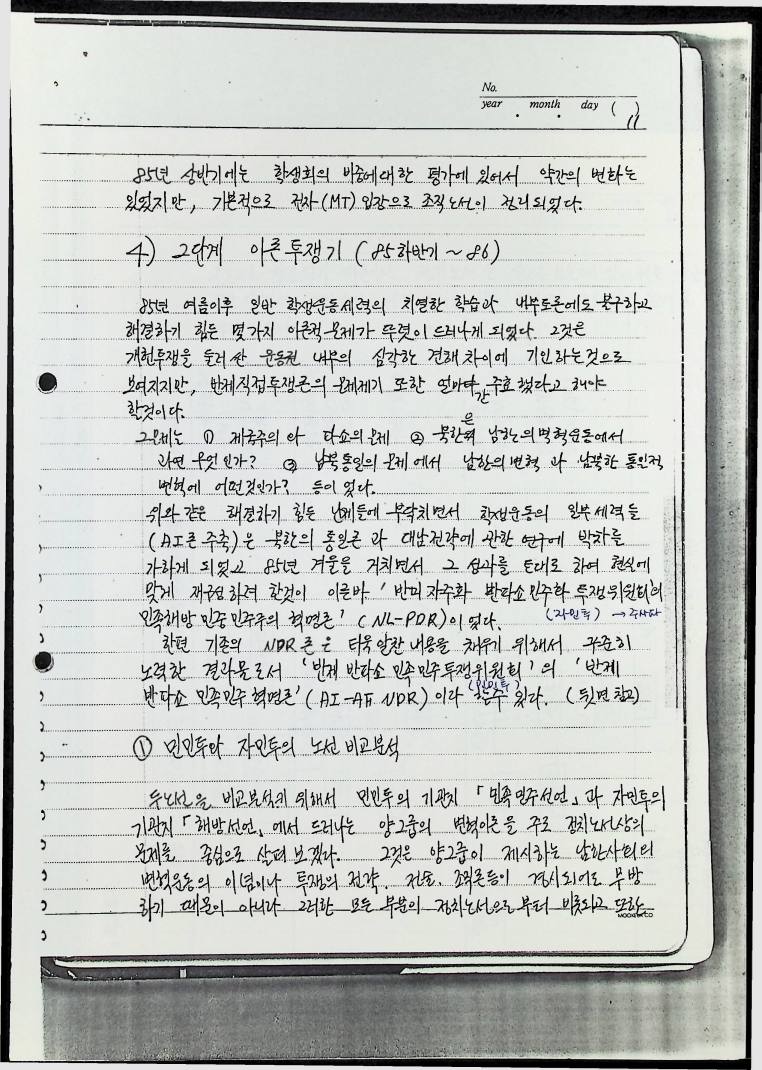 No.
year . month . day ( )
11
85년 상반기에는 학생회의 비중에대한 평가에 있어서 약간의 변화는
있었지만, 기본적으로 전자(MT) 입장으로 조직노선이 정리되었다.
4) 2단계 이론투쟁기 (85하반기 ~ 86)
85년 여름이후 일반 학생운동세력의 치열한 학습과 내부토론에도 불구하고
해결하기 힘든 몇가지 이론적 문제가 뚜렷이 드러나게 되었다. 그것은
개헌투쟁을 둘러싼 운동권 내부의 심각한 견해차이에 기인하는것으로
보여지지만, 반제직접투쟁론의 문제제기 또한 얼마간 주효했다고 해야
할것이다.
그문제는 ① 제국주의와 파쇼의 문제 ② 북한은 남한의 변혁운동에서
과연 무엇인가? ③ 남북통일의 문제에서 남한의 변혁과 남북한 통일적
변혁에 어떤것인가? 등이었다.
위와 같은 해결하기 힘든 난제들에 부닥치면서 학생운동의 일부세력들
(AI론 주축)은 북한의 통일론과 대남전략에 관한 연구에 박차를
가하게 되었고 85년 겨울을 거치면서 그 성과를 토대로 하여 현실에
맞게 재구성하려 한것이 이른바 '반미자주화 반파쇼민주화 투쟁위원회'의
(자민투) → 주사파
민족해방 민중 민주주의 혁명론' (NL-PDR)이었다.
한편 기존의 NDR론은 더욱 알찬 내용을 채우기 위해서 꾸준히
노력한 결과물로서 '반제 반파쇼 민족민주투쟁위원회'의 '반제
(민민투)
반파쇼 민족민주혁명론' (AI-AF NDR) 이라 할수 있다. (뒷면 참고)
① 민민투와 자민투의 노선 비교분석
두노선을 비교분석키 위해서 민민투의 기관지 「민족민주선언」과 자민투의
기관지 「해방선언」에서 드러나는 양그룹의 변혁이론을 주로 정치노선상의
문제를 중심으로 살펴 보겠다. 그것은 양그룹이 제시하는 남한사회의
변혁운동의 이념이나 투쟁의 전략, 전술, 조직론등이 경시되어도 무방
하기 때문이 아니라 그러한 모든 부분이 정치노선으로부터 비롯되고 또한
MOONHWACO